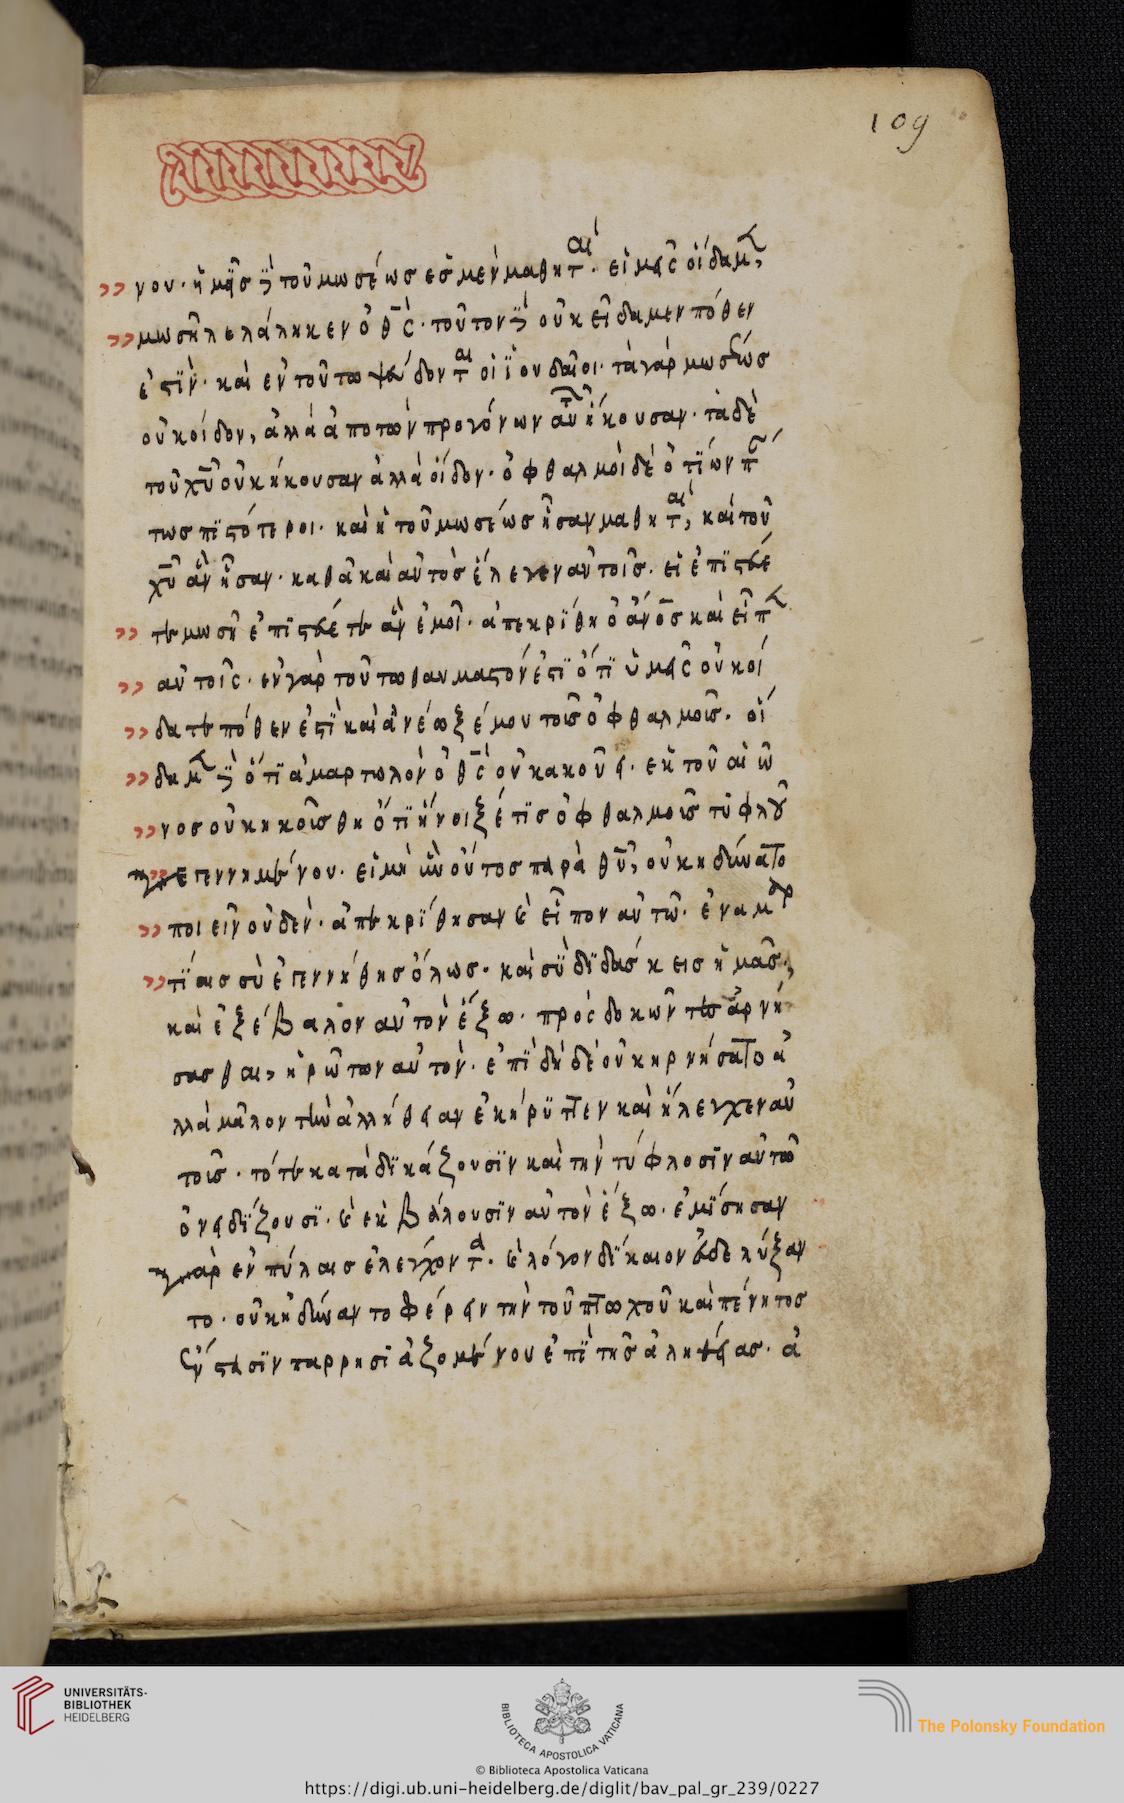 109
νου· ἡμεῖς δὲ τοῦ μωσέως ἐσμὲν μαθηταί· ἡμεῖς οἴδαμεν,
μωσῆ λελάληκεν ὁ θς· τοῦτον δὲ οὐκ εἴδαμεν πόθεν
ἐστὶν· καὶ ἐν τούτω ψεύδονται οἱ ἰουδαῖοι· τὰ γὰρ μωσέως
οὐκ οἶδον, ἀλλὰ ἀπο των προγόνων αὐτῶν ἤκουσαν· τὰ δὲ
τοῦ χῦ οὐκ ἤκουσαν ἀλλὰ οἶδον· ὀφθαλμοὶ δὲ ὀτίων
τωσ πιστότεροι· καὶ ἠ τοῦ μωσέωσ ἦσαν μαθηταί, καὶ τοῦ
χῦ ἂν ἦσαν· καθὰ καὶ αὐτὸσ ἔλεγεν αὐτοῖσ· εἰ ἐπιστεύε
τε μωσῆ ἐπιστεύετε ἂν ἐμοῖ· ἀπεκρίθη ὁ ἄνοσ καὶ εἶπεν
αὐτοῖς· ἐν γὰρ τοῦτω θαυμαστόν ἐστι ὅτι ὑμεῖς οὐκ οἴ
δατε πόθεν ἐστὶ καὶ ἀνέωξέ μου τοῖσ ὀφθαλμοῖσ· οἴ
δαμεν δὲ ὅτι ἁμαρτωλὸν ὁ θς οὐκ ἀκούει· ἐκ τοῦ αἰῶ
νοσ οὐκ ηκοῖσθη ὅτι ἤνοιξέ τισ ὀφθαλμοῖσ τυφλοῦ
γεγεννημένου· εἰ μὴ ἦν οὗτοσ παρὰ θῦ, οὐκ ηδύνατο
ποιεῖν οὐδέν· ἀπεκρίθησαν καὶ εἶπον αὐτῶ· ἐν ἁμαρ
τίαισ σὺ ἐγεννήθησ ὅλωσ· καὶ σὺ διδάσκεισ ἡμᾶσ·,
καὶ ἐξέβαλον αὐτὸν ἔξω· προσδοκῶν ἀρνή
σασθαι, ἠρώτων αὐτόν· ἐπὶ δὴ δὲ οὐκ ηρνήσατο ἀ
λλὰ μᾶλον τὴν ἀλλήθειαν ἐκήρυττεν καὶ ἤλεγχεν αὐ
τοῖσ· τότε καταδικάζουσιν καὶ τὴν τύφλοσιν αὐτῶ
ὀνειδίζουσι· καὶ ἐκβάλουσιν αὐτὸν ἔξω· ἐμίσησαν
γὰρ ἐν πύλαισ ἐλεγχόντα· καὶ λόγον δίκαιον ἐβδελύξαν
το· οὐκ ηδύναντο φέρειν τὴν τοῦ πτωχοῦ καὶ πένητοσ
ἔνστασιν παρρησιἀζομένου ἐπὶ τῆσ ἀληθείασ· ἀ
UNIVERSITÄTS-
BIBLIOTHEK
HEIDELBERG
BIBLIOTECA APOSTOLICA VATICANA
The Polonsky Foundation
© Biblioteca Apostolica Vaticana
https://digi.ub.uni-heidelberg.de/diglit/bav_pal_gr_239/0227